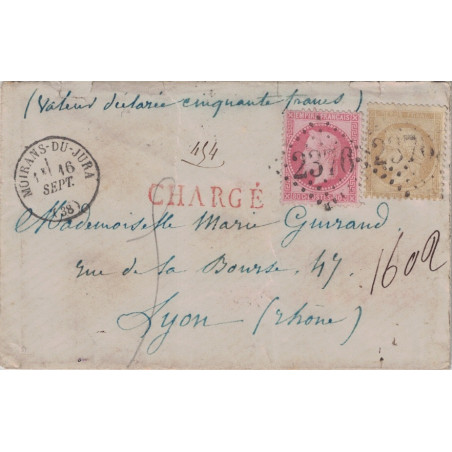 (Valeur déclarée cinquante francs)
454
EMPIRE FRANÇAIS
2376
2376
MOIRANS-DU-JURA
16
SEPT.
(38)
CHARGÉ
Mademoiselle Marie Guirand
rue de la Bourse. 47.
1602
Lyon (Rhône)